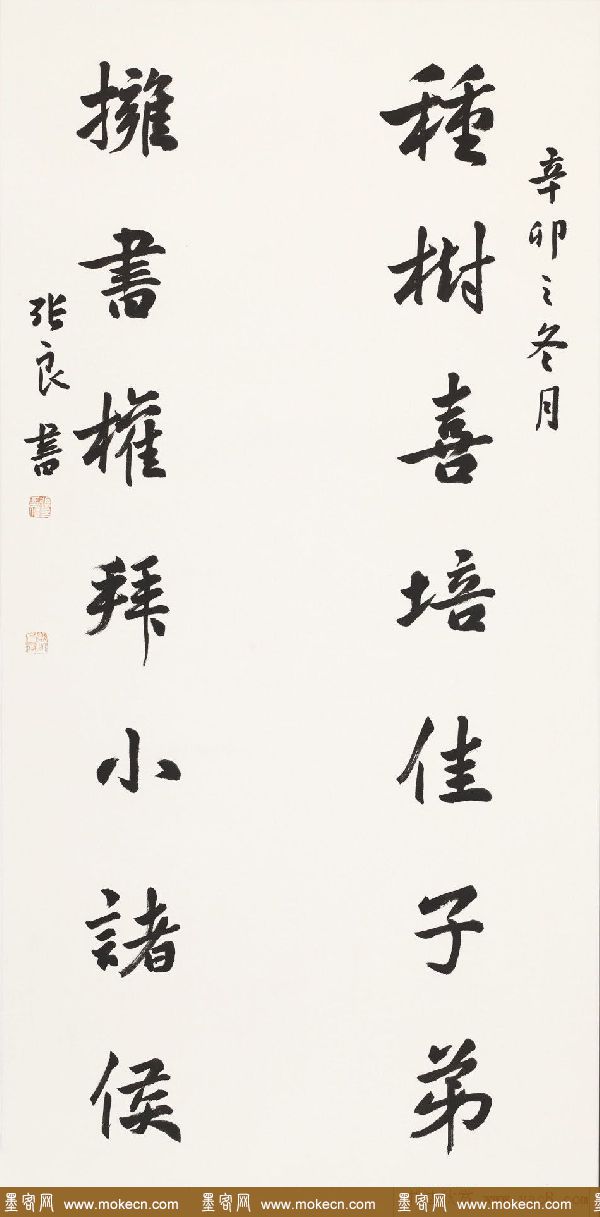 辛卯之冬月
種樹喜培佳子弟
擁書權拜小諸侯
張良書
墨客网 www.mokecn.com 墨客网 www.mokecn.com 墨客网 www.mokecn.com